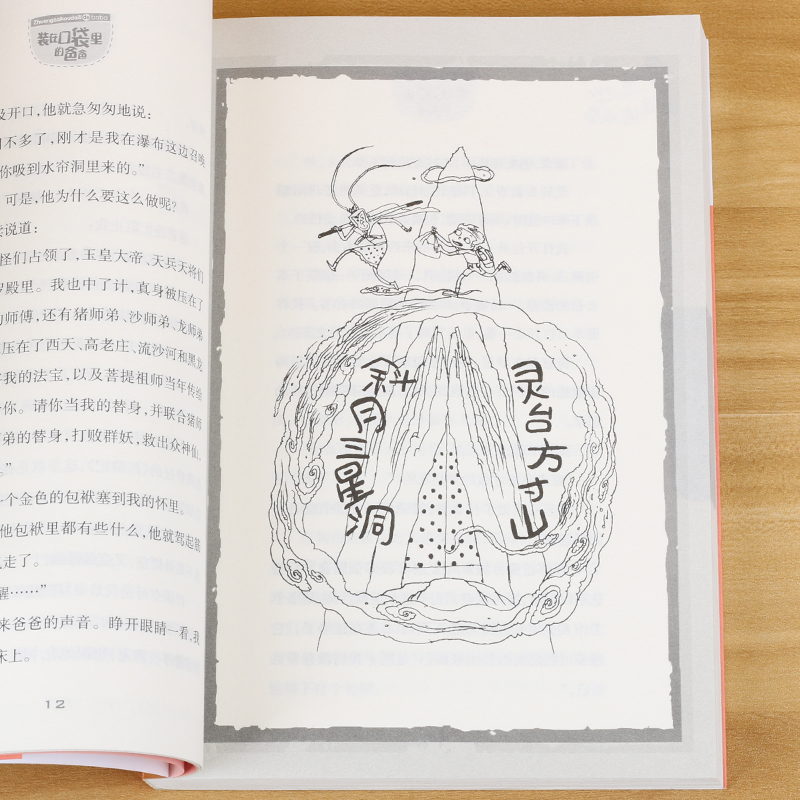 Zhuangzaikoudailide baba
装在口袋里
的爸爸
开口，他就急匆匆地说：
不多了，刚才是我在瀑布这边召唤
你吸到水帘洞里来的。”
可是，他为什么要这么做呢？
说道：
怪们占领了，玉皇大帝、天兵天将们
殿里。我也中了计，真身被压在了
师傅，还有猪师弟、沙师弟、龙师弟
压在了西天、高老庄、流沙河和黑龙
我的法宝，以及菩提祖师当年传给
你。请你当我的替身，并联合猪师
弟的替身，打败群妖，救出众神仙。
。”
个金色的包袱塞到我的怀里。
他包袱里都有些什么，他就驾起筋
走了。
醒……”
来爸爸的声音。睁开眼睛一看，我
床上。
12
灵台方寸山
斜月三星洞